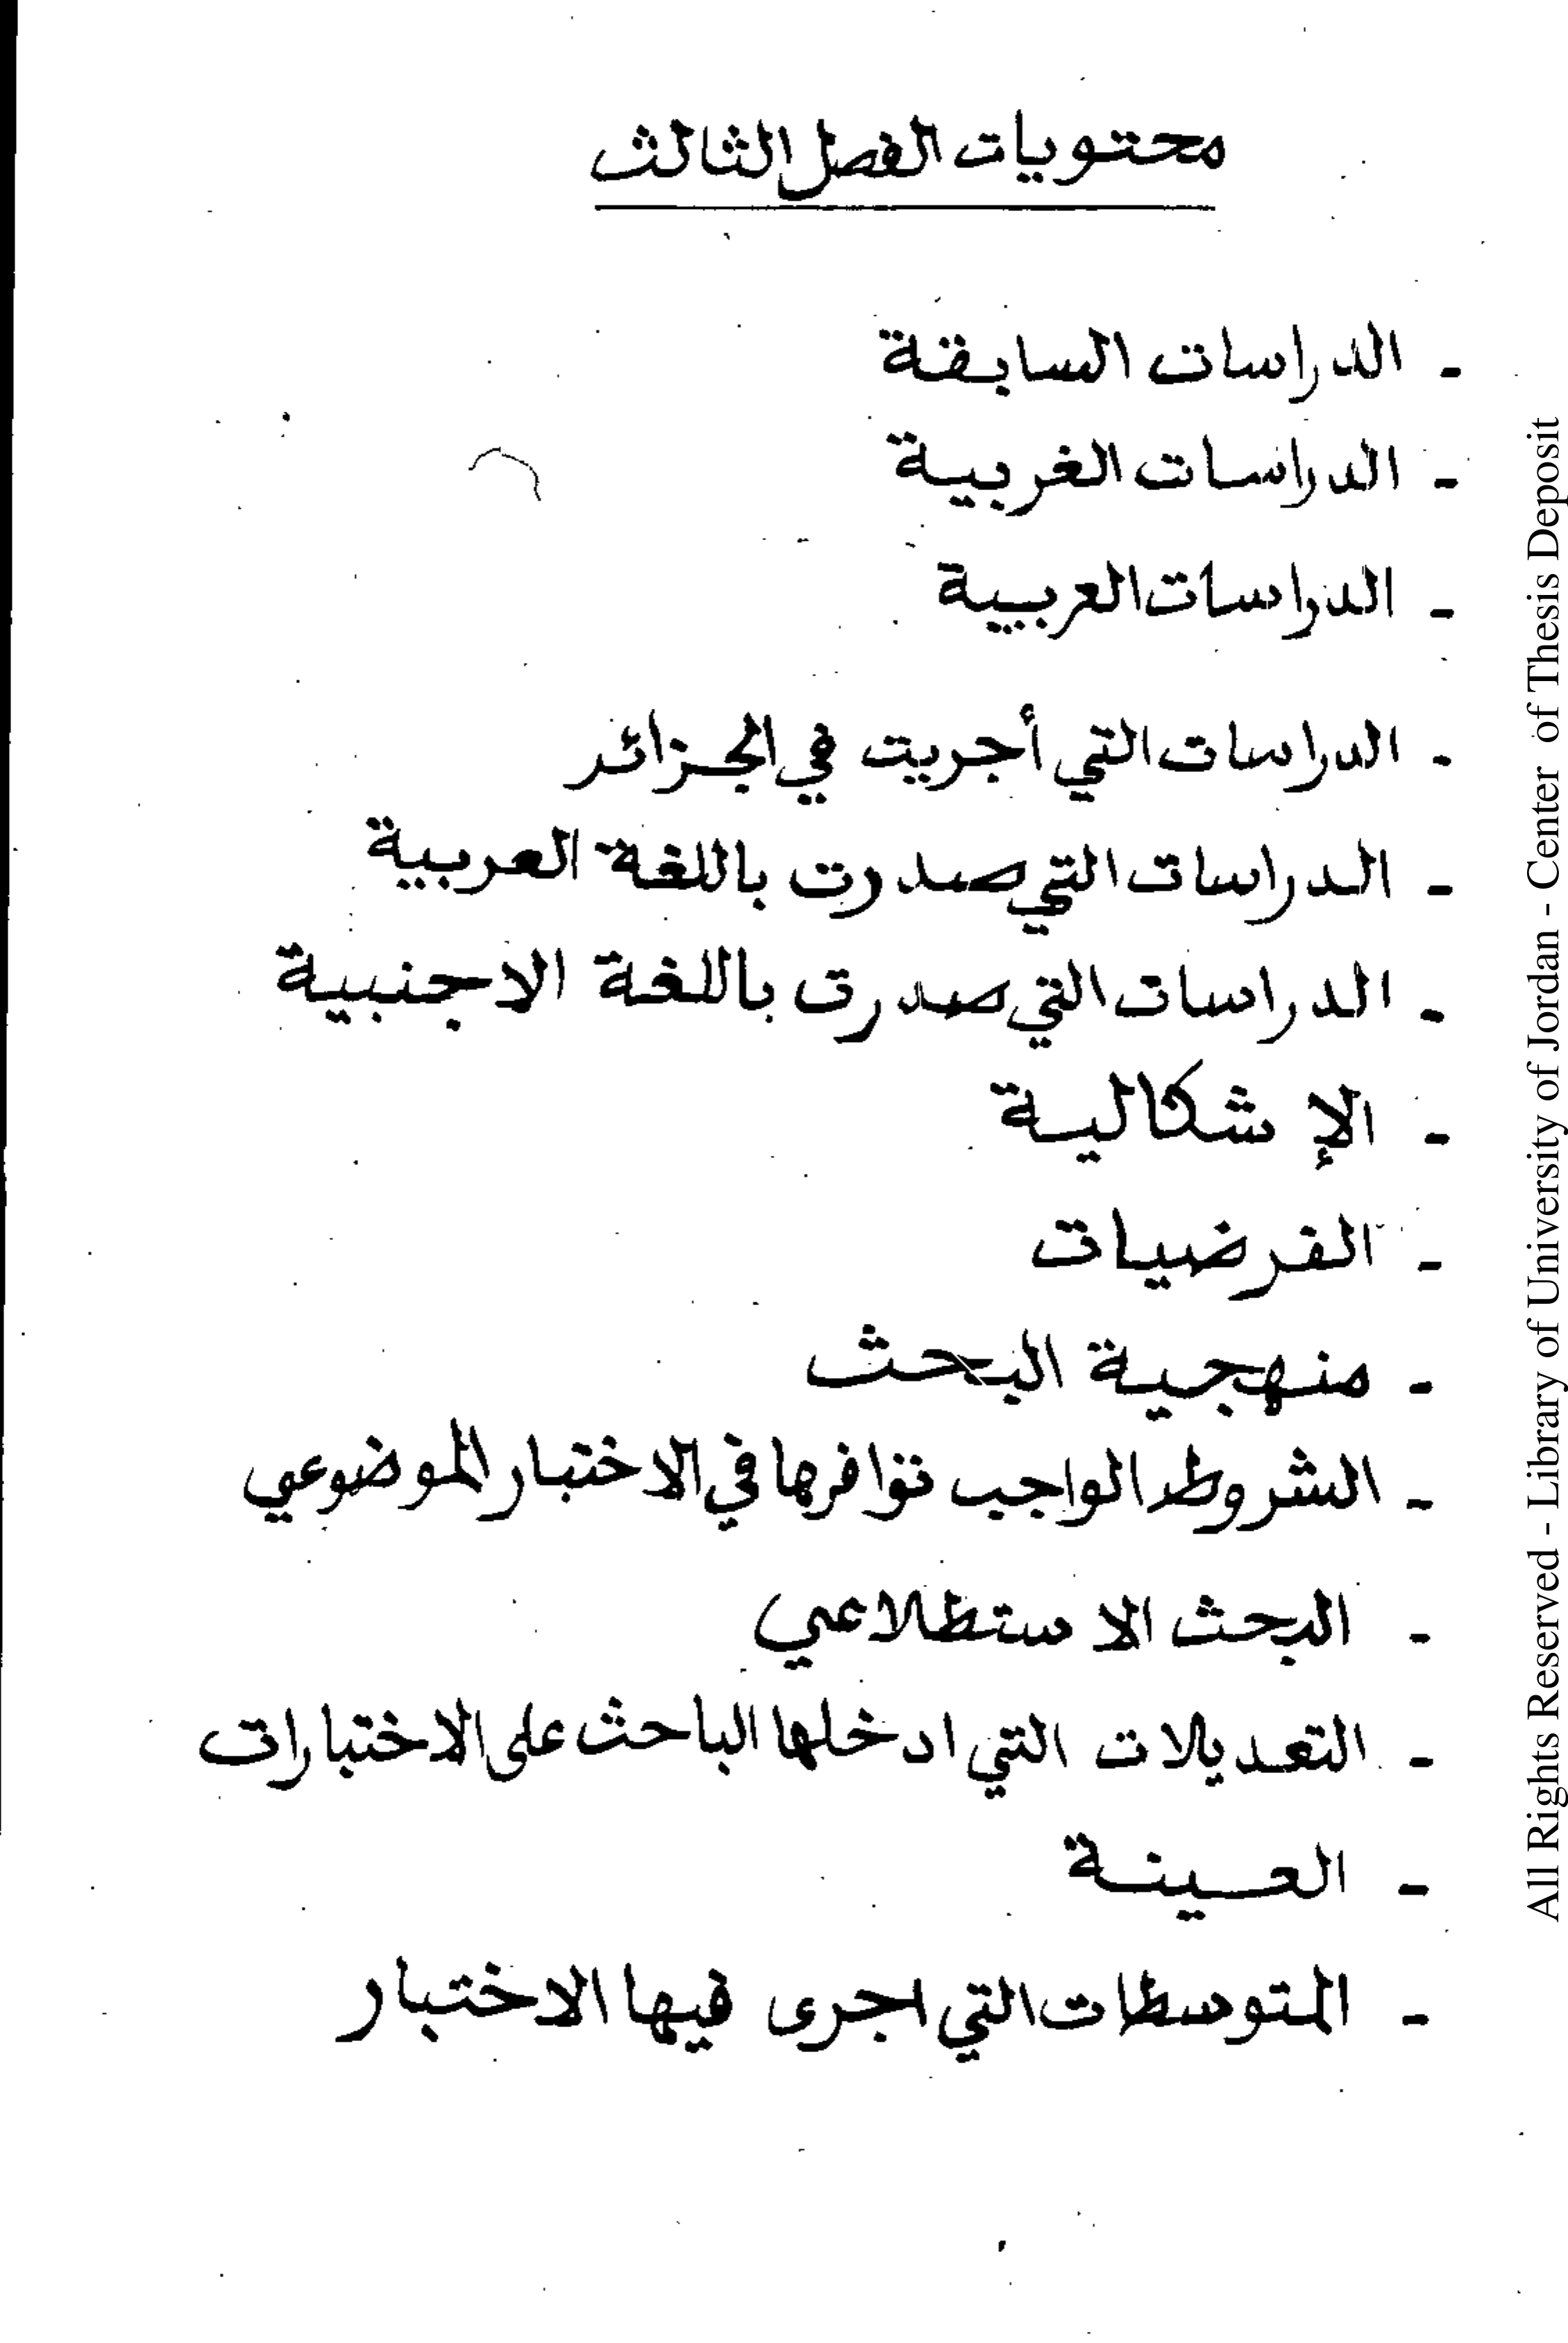 محتويات الفصل الثالث
- الدراسات السابقة
- الدراسات الغربية
- الدراسات العربية
- الدراسات التي أجريت في الجزائر
- الدراسات التي صدرت باللغة العربية
- الدراسات التي صدرت باللغة الاجنبية
- الإشكالية
- الفرضيات
- منهجية البحث
- الشروط الواجب توافرها في الاختبار الموضوعي
- البحث الاستطلاعي
- التعديلات التي ادخلها الباحث على الاختبارات
- العينة
- المتوسطات التي اجرى فيها الاختبار
All Rights Reserved - Library of University of Jordan - Center of Thesis Deposit